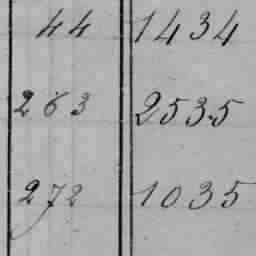 44 1434
263 2535
272 1035